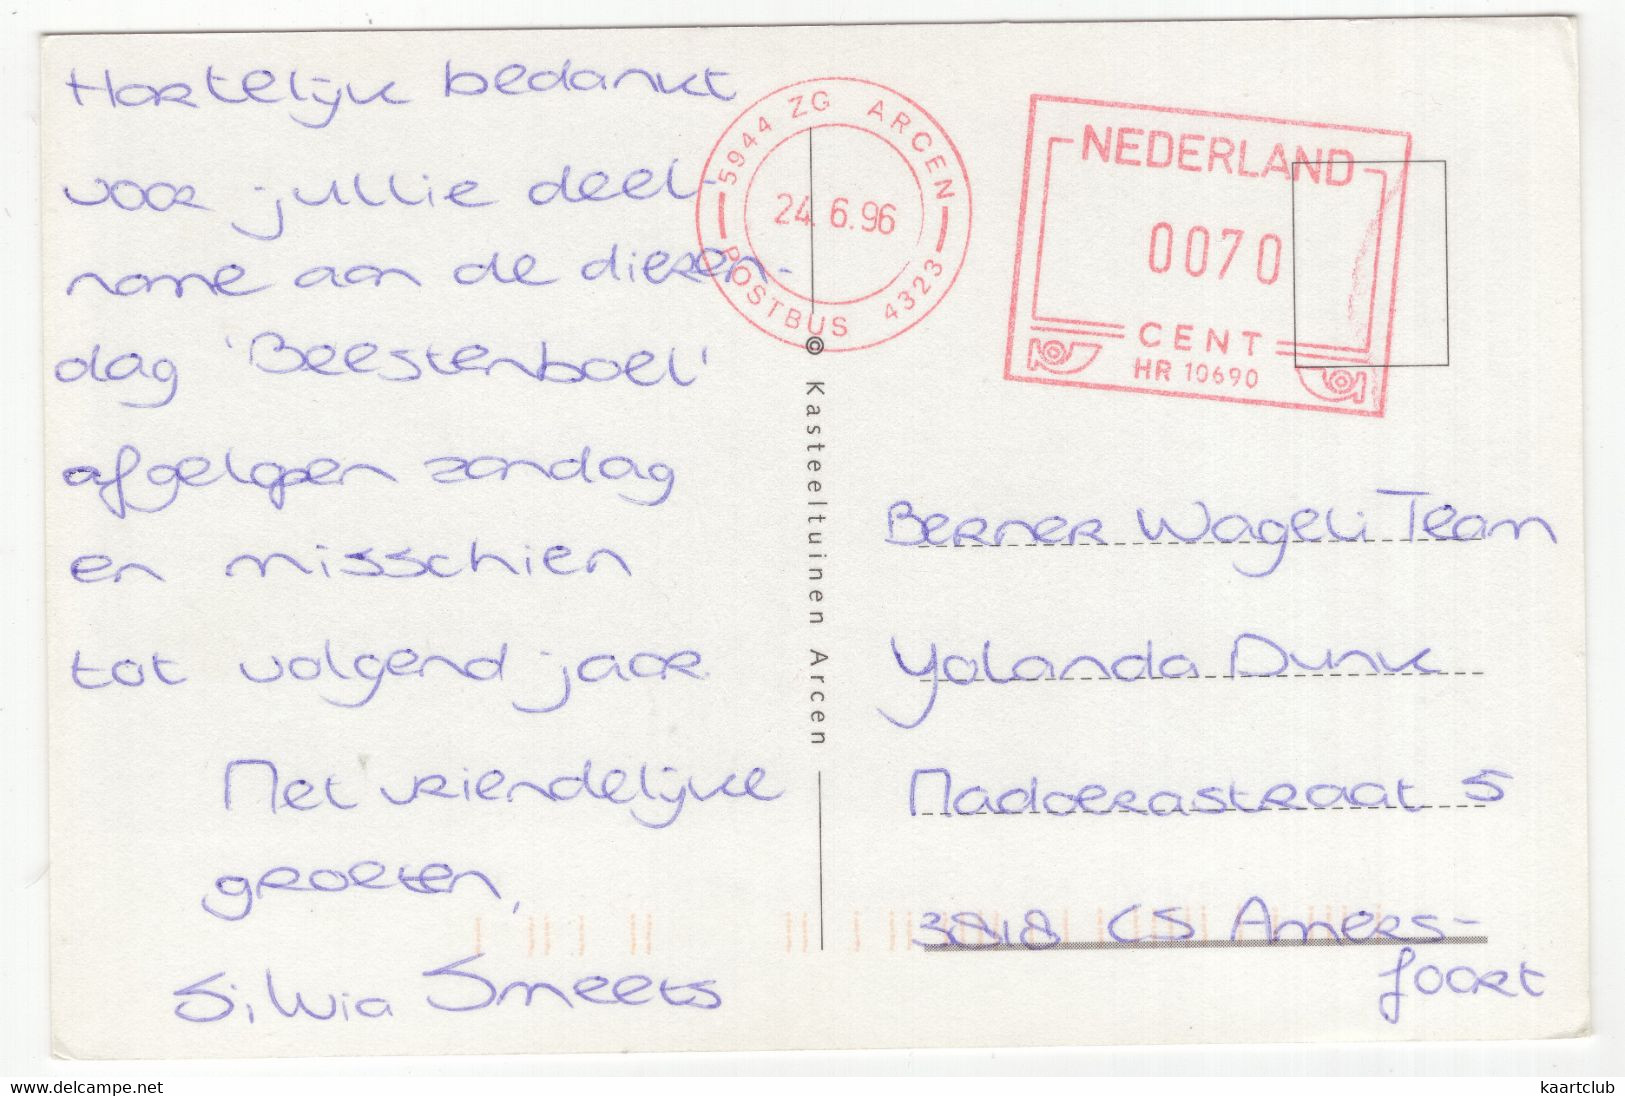 Hartelijk bedankt
voor jullie deel-
name aan de dieren-
dag 'Beestenboel'
afgelopen zondag
en misschien
tot volgend jaar
Met vriendelijke
groeten,
Silvia Smeets
5944 ZG ARCEN
24.6.96
POSTBUS 4323
NEDERLAND
0070
CENT
HR 10690
© Kasteeltuinen Arcen
Berner Wageli Team
Yolanda Dunk
Madoerastraat 5
3818 CS Amers-
foort
www.delcampe.net
kaartclub